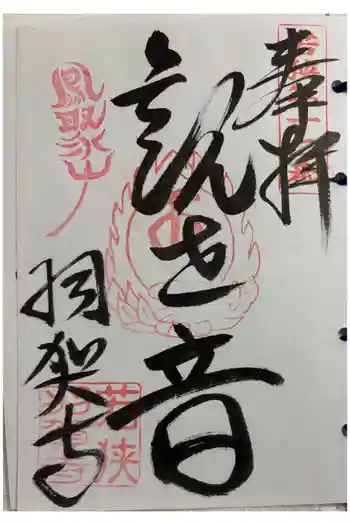 奉拝
観世音
羽賀寺
鳳聚山
若狭
羽賀寺